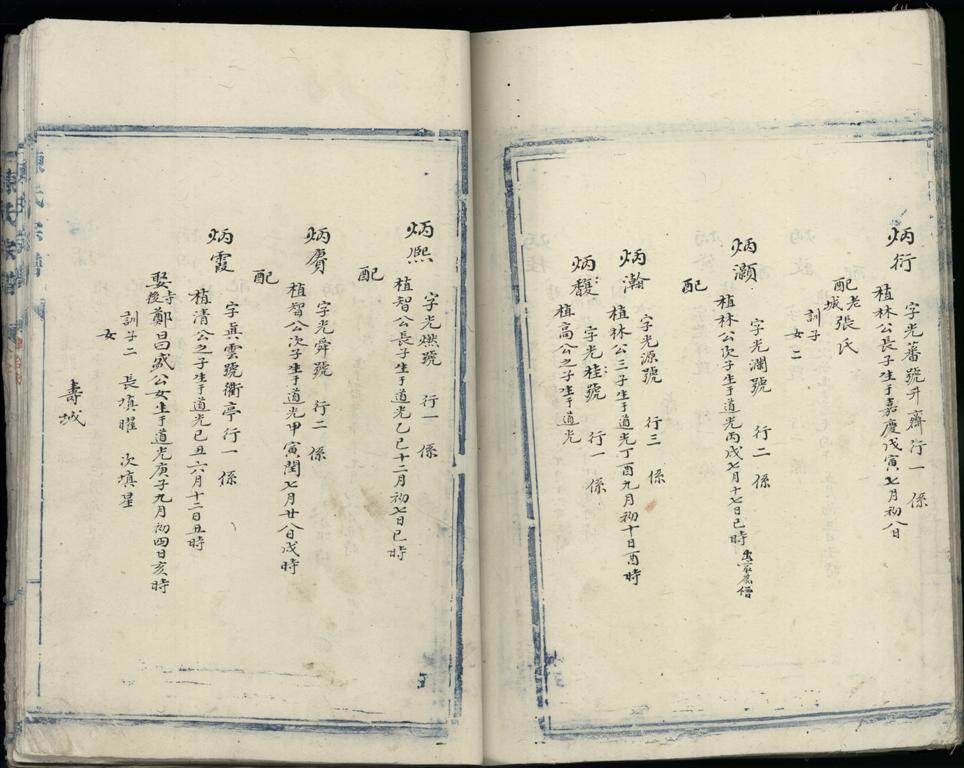 炳衍
字光蕃號升齋行一係
植林公長子生于嘉慶戊寅七月初八日
配老城張氏
訓子
女二
炳灝
字光瀾號 行二 係
植林公次子生于道光丙戌七月十七日巳時
配
炳瀚
字光源號 行三 係
植林公三子生于道光丁酉九月初十日酉時
炳馥
字光桂號 行一 係
植高公之子生于道光
炳熙
字光燃號 行一 係
植智公長子生于道光乙巳十二月初七日巳時
配
炳賡
字光舜號 行二 係
植智公次子生于道光甲寅閏七月廿八日戌時
配
炳霞
字眞雲號衢亭行一 係
植清公之子生于道光己丑六月十二日丑時
娶寺後鄭昌盛公女生于道光庚子九月初四日亥時
訓子二 長填曜 次填星
女
壽城
陳氏宗譜